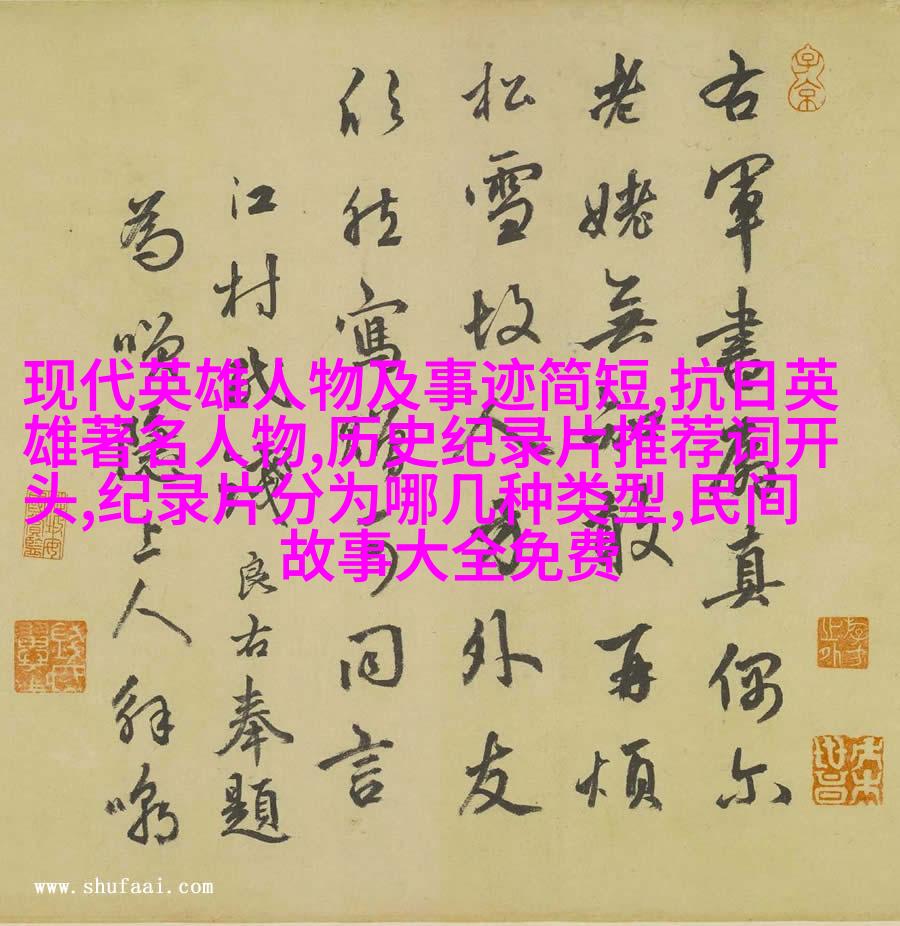 现代英雄人物及事迹简短,抗日英
雄著名人物,历史纪录片推荐词开
头,纪录片分为哪几种类型,民间
故事大全免费
右軍書扇真偶尔
老姥無敢再煩
松雪故外友
欣然寫同言
江村良右奉題
為隱上人解嘲
www.shufaai.com